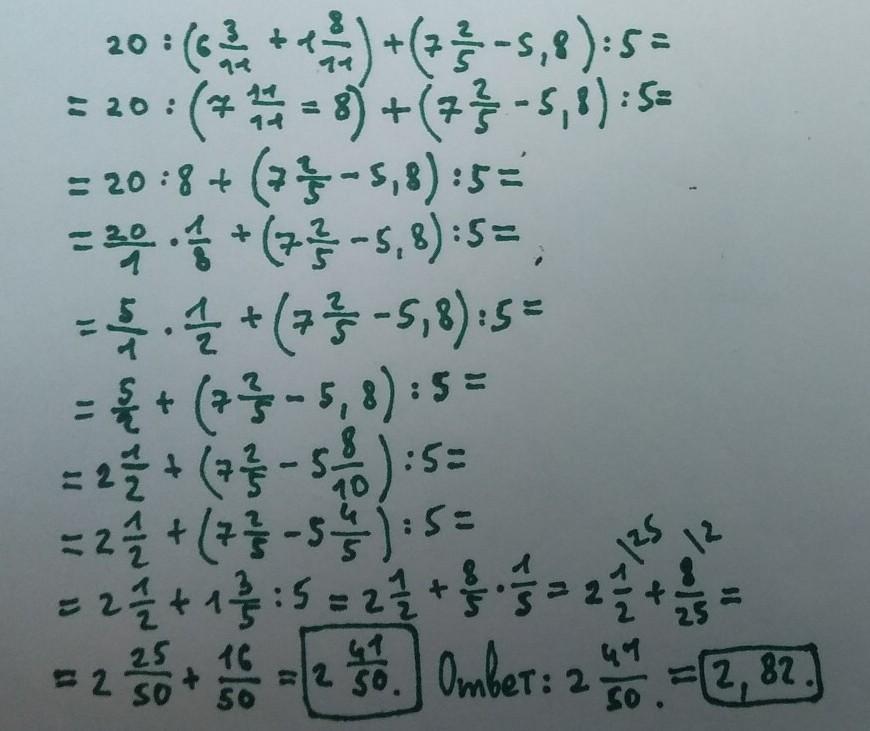 20 : (6 3/11 + 1 8/11) + (7 2/5 - 5,8) : 5 =
= 20 : (7 11/11 = 8) + (7 2/5 - 5,8) : 5 =
= 20 : 8 + (7 2/5 - 5,8) : 5 =
= 20/1 · 1/8 + (7 2/5 - 5,8) : 5 =
= 5/1 · 1/2 + (7 2/5 - 5,8) : 5 =
= 5/2 + (7 2/5 - 5,8) : 5 =
= 2 1/2 + (7 2/5 - 5 8/10) : 5 =
= 2 1/2 + (7 2/5 - 5 4/5) : 5 =
= 2 1/2 + 1 3/5 : 5 = 2 1/2 + 8/5 · 1/5 = 2 1/2 \25 + 8/25 \2 =
= 2 25/50 + 16/50 = 2 41/50. Ответ: 2 41/50. = 2,82.